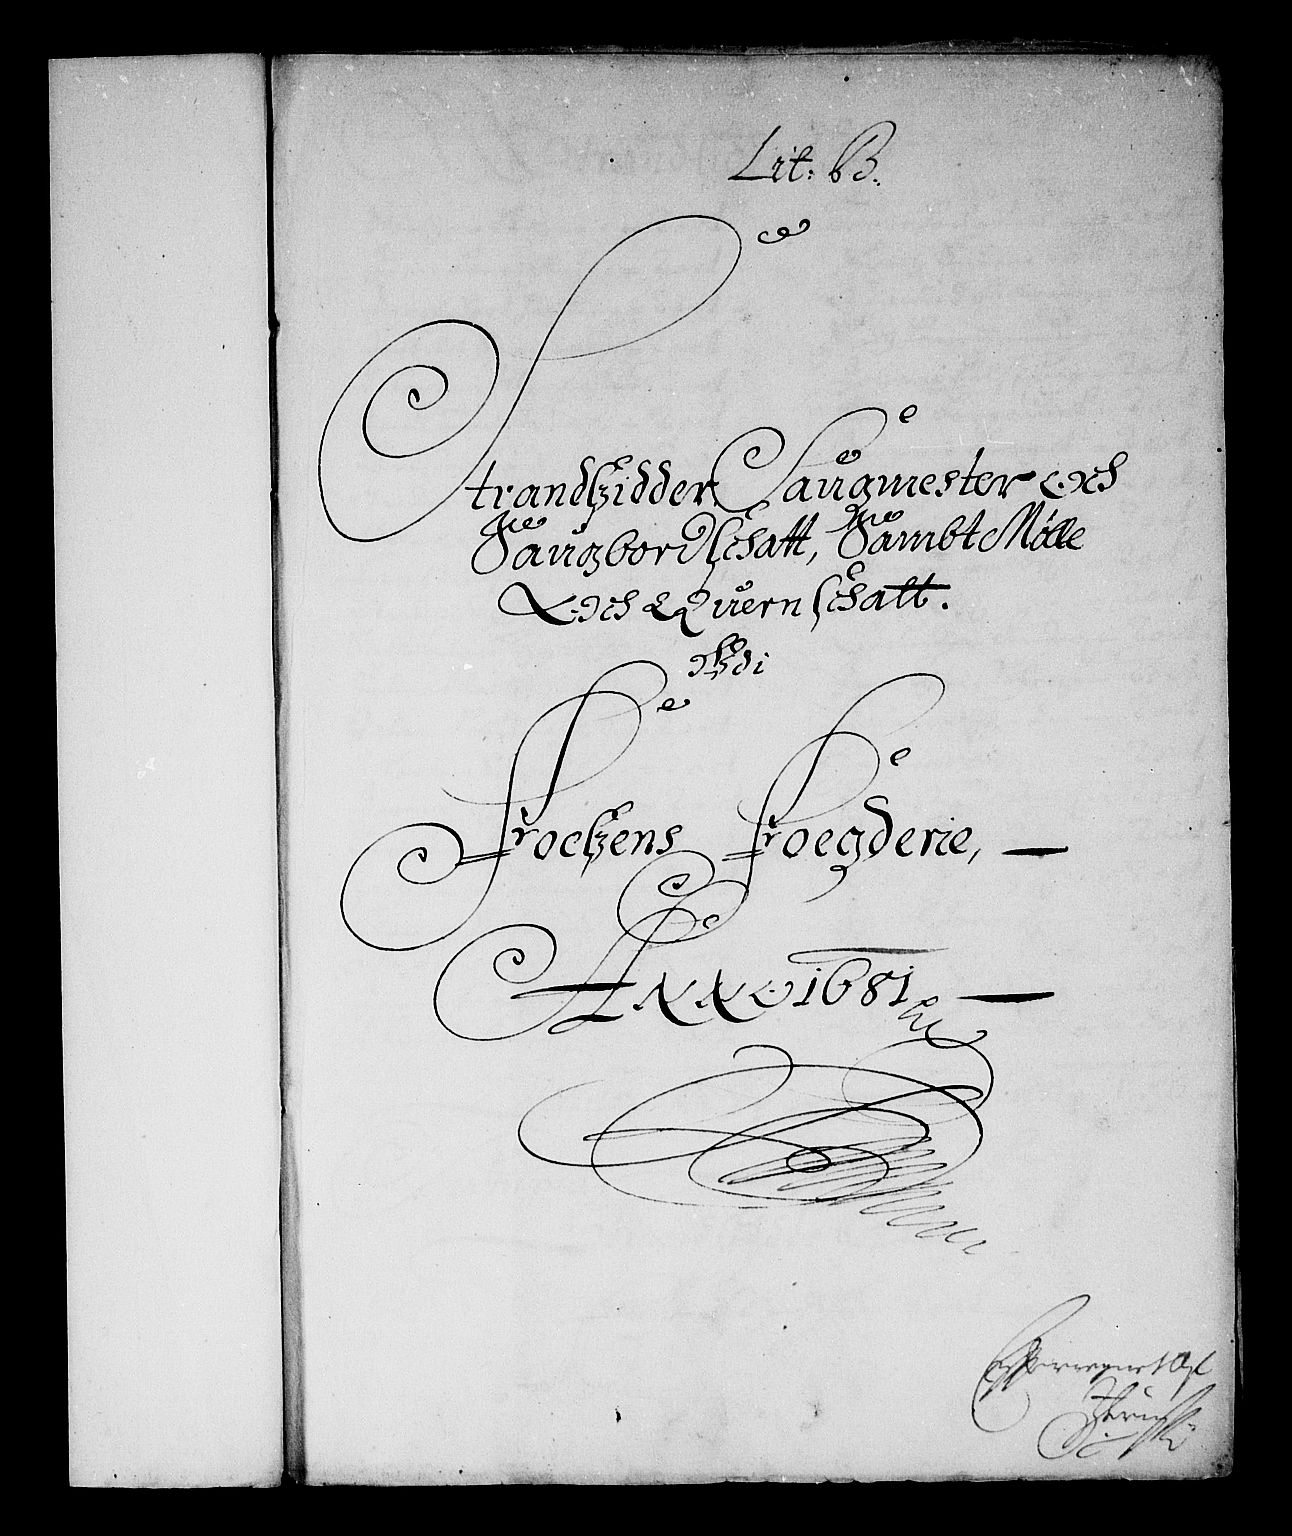 Lit: B.
Strandsidder Saugmester och
Saugbordschatt, Sambt Mølle
Och Quernschatt.
Udi
Frochens Froegderie,
ANNO 1681